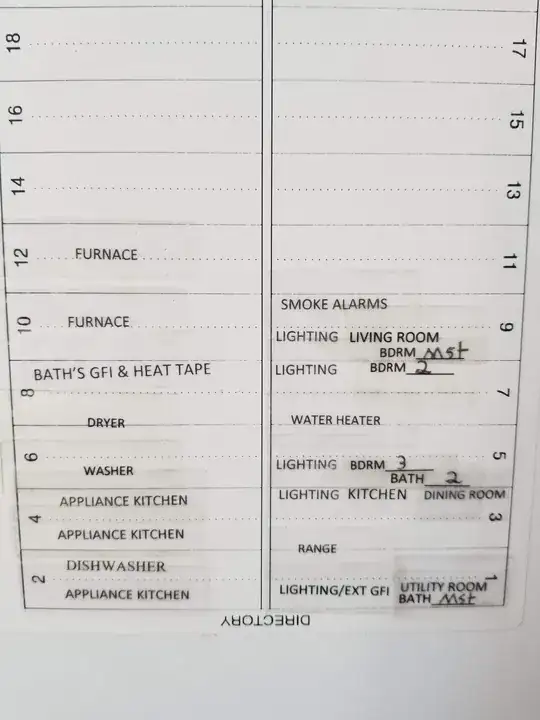 18
17
16
15
14
13
12
FURNACE
11
SMOKE ALARMS
10
FURNACE
9
LIGHTING LIVING ROOM
BDRM Mst
BATH'S GFI & HEAT TAPE
LIGHTING BDRM 2
8
7
DRYER
WATER HEATER
6
5
WASHER
LIGHTING BDRM 3
BATH 2
APPLIANCE KITCHEN
LIGHTING KITCHEN DINING ROOM
4
3
APPLIANCE KITCHEN
RANGE
DISHWASHER
2
1
APPLIANCE KITCHEN
LIGHTING/EXT GFI UTILITY ROOM
BATH Mst
DIRECTORY